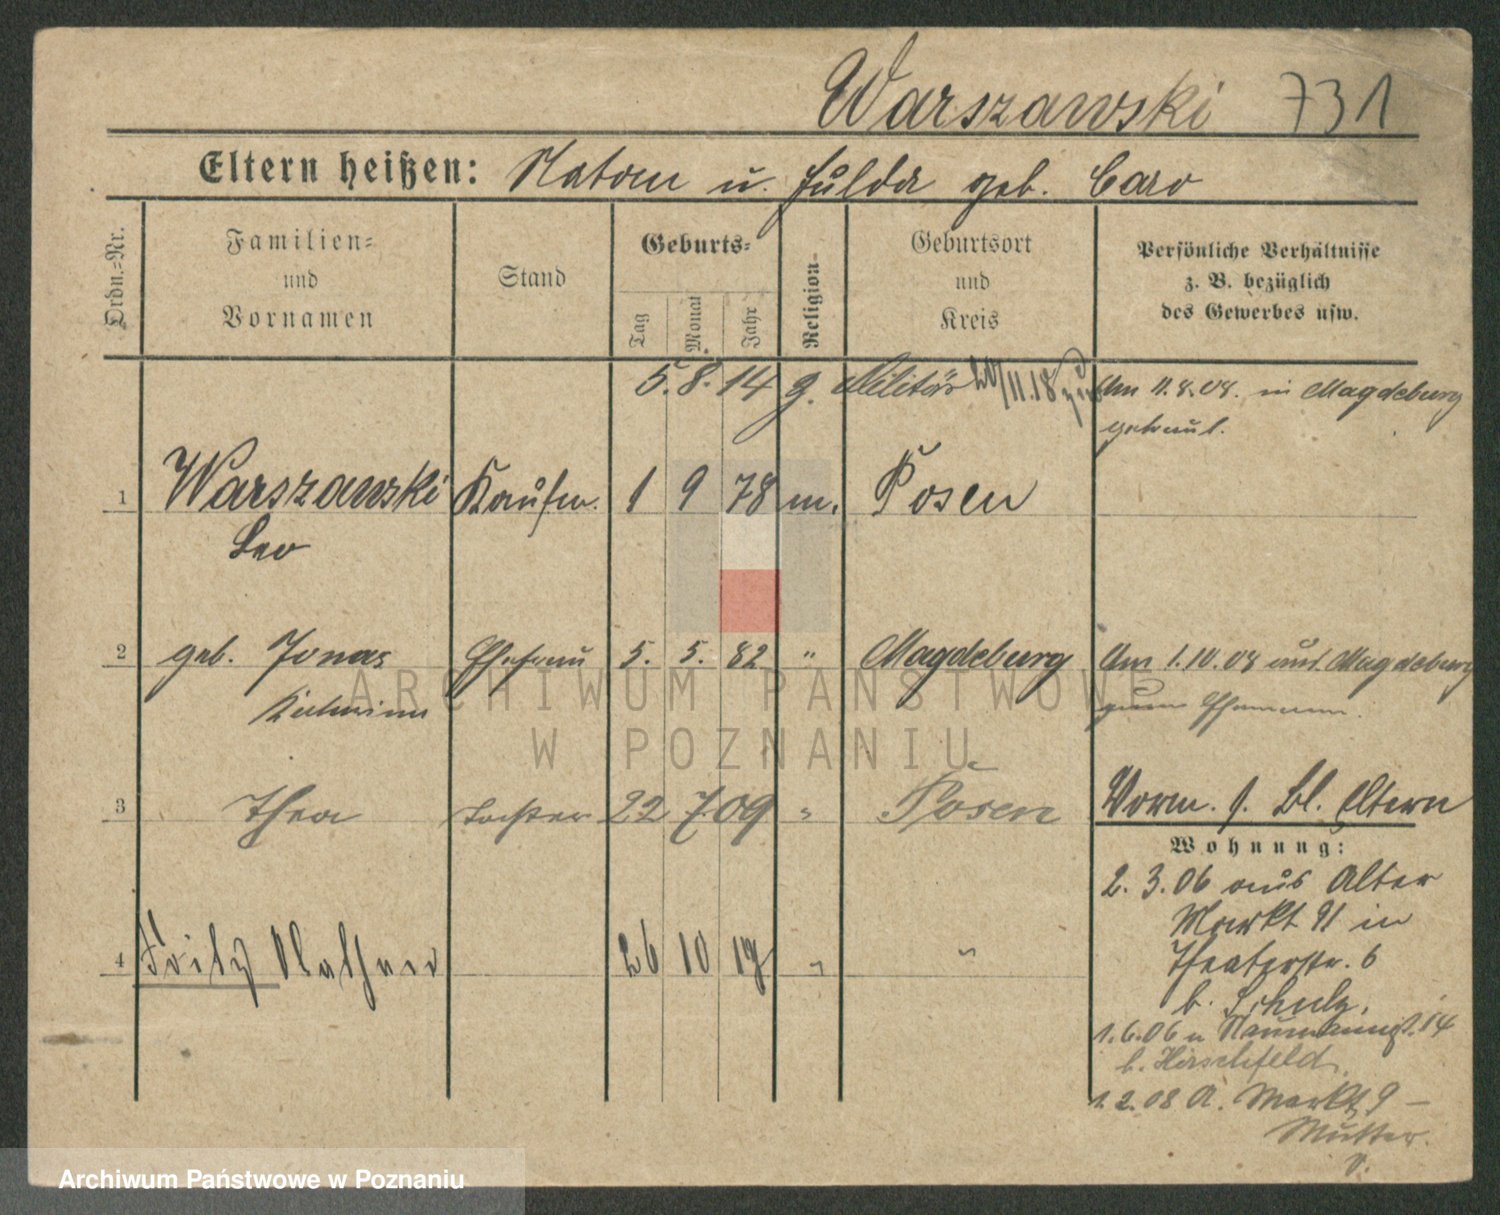 Warszawski 731
Eltern heißen: Natan u. Hulda geb. Caro
Ordn.=Nr.
Familien=
und
Vornamen
Stand
Geburts=
Tag
Monat
Jahr
Religion
Geburtsort
und
Kreis
Persönliche Verhältnisse
z. B. bezüglich
des Gewerbes usw.
5. 8. 14 z. Militär 20/11.18 zur
Am 11.8.08. in Magdeburg
getraut.
1 Warszawski Kaufm. 1 9 78 m. Posen
Leo
2 geb. Jonas Ehefrau 5. 5. 82 " Magdeburg Am 1.10.08 aus Magdeburg
zum Ehemann.
3 Thea Tochter 22 7 09 " Posen Vorm. s. Bl. Eltern
Wohnung:
2. 3. 06 aus Alter
Markt 91 in
Theaterstr. 6
b. Schulz.
4 Fritz 26 10 " "
1.6.06 n Naumannst. 14
b. Hirschfeld.
1. 2. 08 A. Markt 9 –
Mutter.
ARCHIWUM PAŃSTWOWE
W POZNANIU
Archiwum Państwowe w Poznaniu